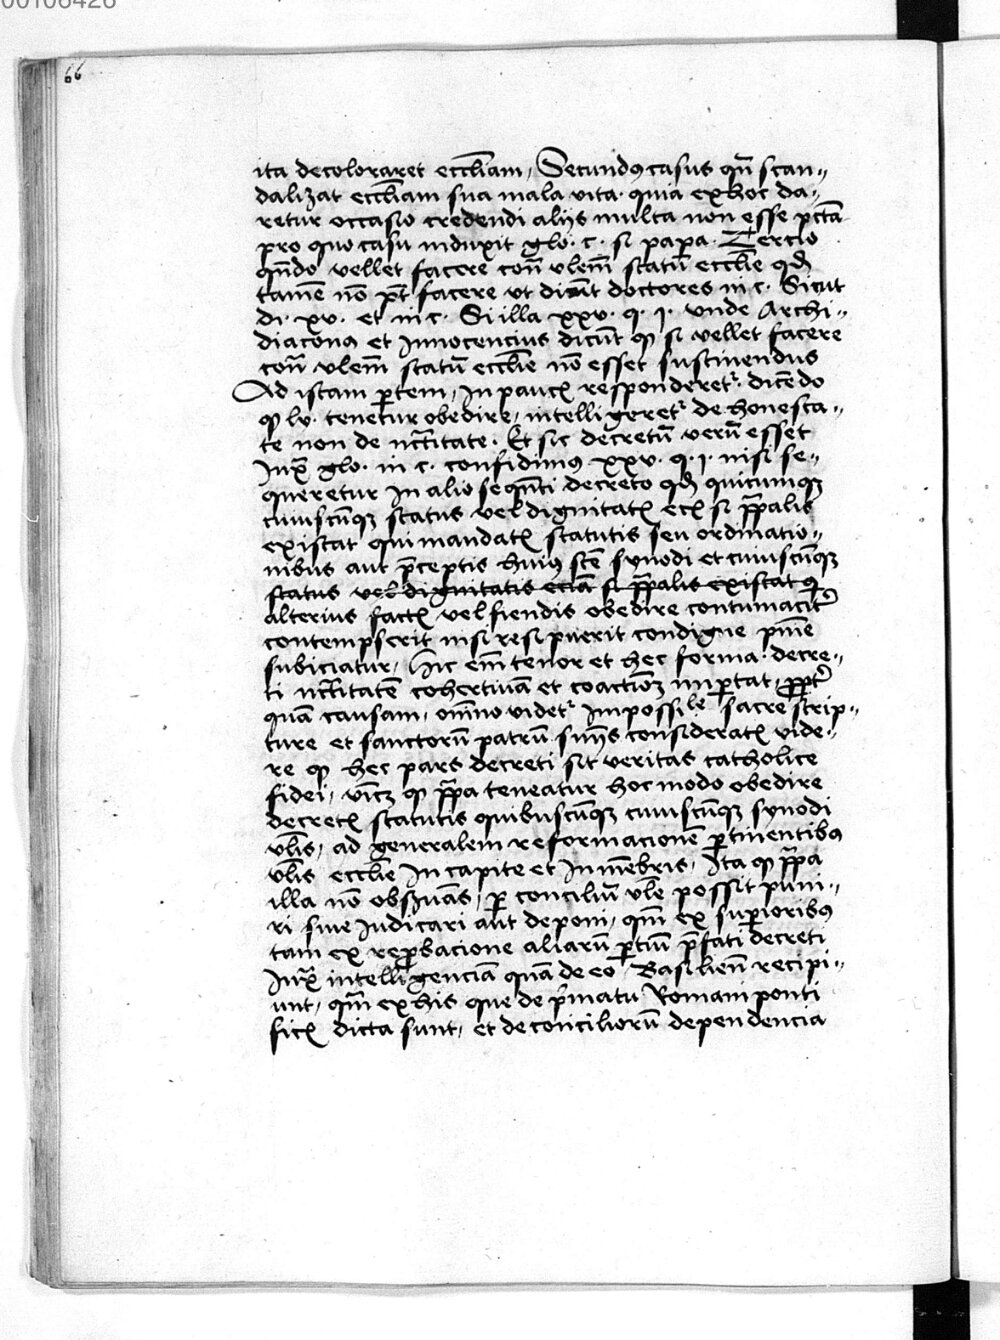 00106426
66
ita decoloraret eccl̄iam, Secundus casus qn̄ scan„
dalizat eccl̄iam sua mala vita. quia ex hoc da„
retur occasio credendi alijs multa non esse pctā
pro quo casu induxit glo. c. si papa. Tercio
qn̄do vellet facere con̄ vlem̄ statū ecclie qd̄
tamē nō pt̄ facere vt dicūt doctores in c. Sicut
di. xv. et in c. Si illa xxv. q. j. vnde Archi„
diacona et Innocencius dicūt qꝫ si vellet facere
con̄ vlem̄ statū ecclie nō esset sustinendus
Ad istam ꝑtem, In paucꝭ responderetᵣ. dicēdo
qꝫ lꝫ. tenetur obedire, intelligeretᵣ de honesta„
te non de nc̄citate. Et sic decretū verū esset
Iuxᵃ glo. in c. confidimꝰ xxv. q. j. nisi se„
queretur In alio seqn̄ti decreto qd̄ quicumqꝫ
cuiuscūqꝫ status vel dignitatꝭ ecꝭ si p̄palis
existat qui mandatꝭ statutis seu ordinatio„
nibus aut p̄ceptis huiꝰ sc̄e synodi et cuiuscūqꝫ
status vel dignitatis eciā si p̄palis existat q̄
alterius factꝭ vel fiendis obedire contumacitᵉʳ
contempserit nisi resipuerit condigne pnīe
subiciatur, hic em̄ tenor et hec forma. decre„
ti nc̄citatē cohertiuam et coactioꝫ imꝑtat, ꝓptᵉʳ
quā causam, omīno videtᵣ Impossiˡᵉ sacre scrip„
ture et sanctorū patrū sniīs consideratꝭ vide„
re qꝫ hec pars decreti sit veritas catholice
fidei, vicꝫ qꝫ p̄pa teneatur hoc modo obedire
decretꝭ statutis quibuscūqꝫ cuiuscūqꝫ synodi
vlis, ad generalem reformacionē ꝑtinentibꝰ
vlis ecclie In capite et In mēbris, Ita qꝫ p̄pa
illa nō obsꝰuās, ꝑ conciliū vle possit puni„
ri siue Iudicari aut deponi, qm̄ ex suꝑioribꝰ
tam ex reꝓbacione aliarū ꝑtiū p̄fati decreti
Iuxᵃ intelligenciā quā de eo Basilien̄ recipi„
unt, qm̄ ex his que de pⁱmatu Romani ponti
ficꝭ dicta sunt, et de conciliorū dependencia